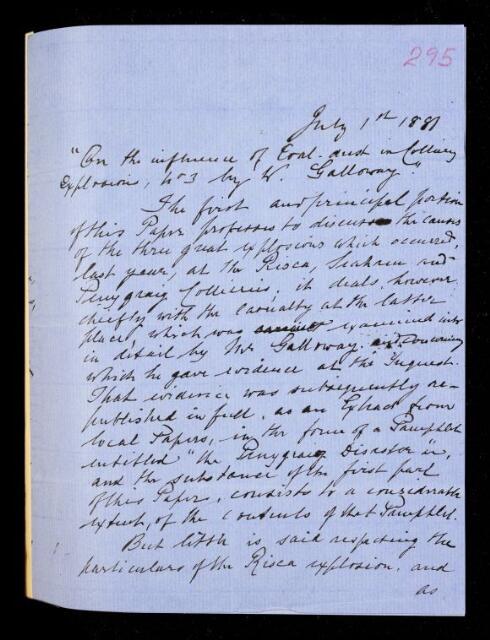 295
July 1st 1881
"On the influence of Coal-dust in Colliery
Explosions, No 3 by W. Galloway."
The first and principal portion
of this Paper professes to discuss the causes
of the three great explosions which occurred,
last year, at the Risca, Seaham and
Penygraig Collieries; it deals, however,
chiefly with the casualty at the latter
place, which was examined into
in detail by Mr Galloway and concerning
which he gave evidence at the Inquest.
That evidence was subsequently re-
published in full, as an Extract from
local Papers, in the form of a Pamphlet
entitled "the Penygraig Disaster",
and the substance of the first part
of this Paper, consists to a considerable
extent, of the contents of that Pamphlet.
But little is said respecting the
particulars of the Risca explosion, and
as